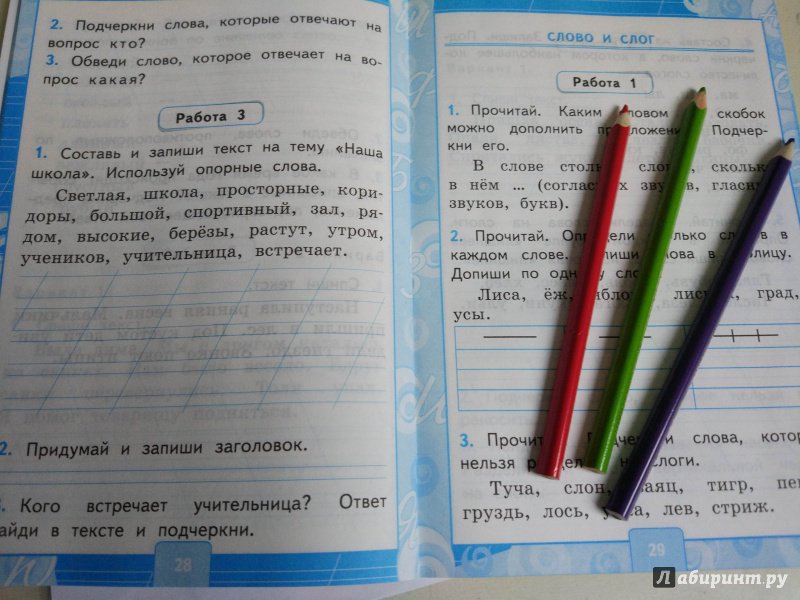 2. Подчеркни слова, которые отвечают на
вопрос кто?
3. Обведи слово, которое отвечает на во-
прос какая?
Работа 3
1. Составь и запиши текст на тему «Наша
школа». Используй опорные слова.
Светлая, школа, просторные, кори-
доры, большой, спортивный, зал, ря-
дом, высокие, берёзы, растут, утром,
учеников, учительница, встречает.
2. Придумай и запиши заголовок.
Кого встречает учительница? Ответ
айди в тексте и подчеркни.
28
СЛОВО И СЛОГ
Работа 1
1. Прочитай. Каким словом скобок
можно дополнить Подчер-
кни его.
В слове сколько
в нём ... звуков,
звуков, букв).
2. Прочитай. в
каждом слове. слова в
Допиши по
Лиса, ёж, град,
усы.
3. слова,
нельзя на слоги.
Туча, слон, тигр,
груздь, лось, лев, стриж.
29
Лабиринт.ру